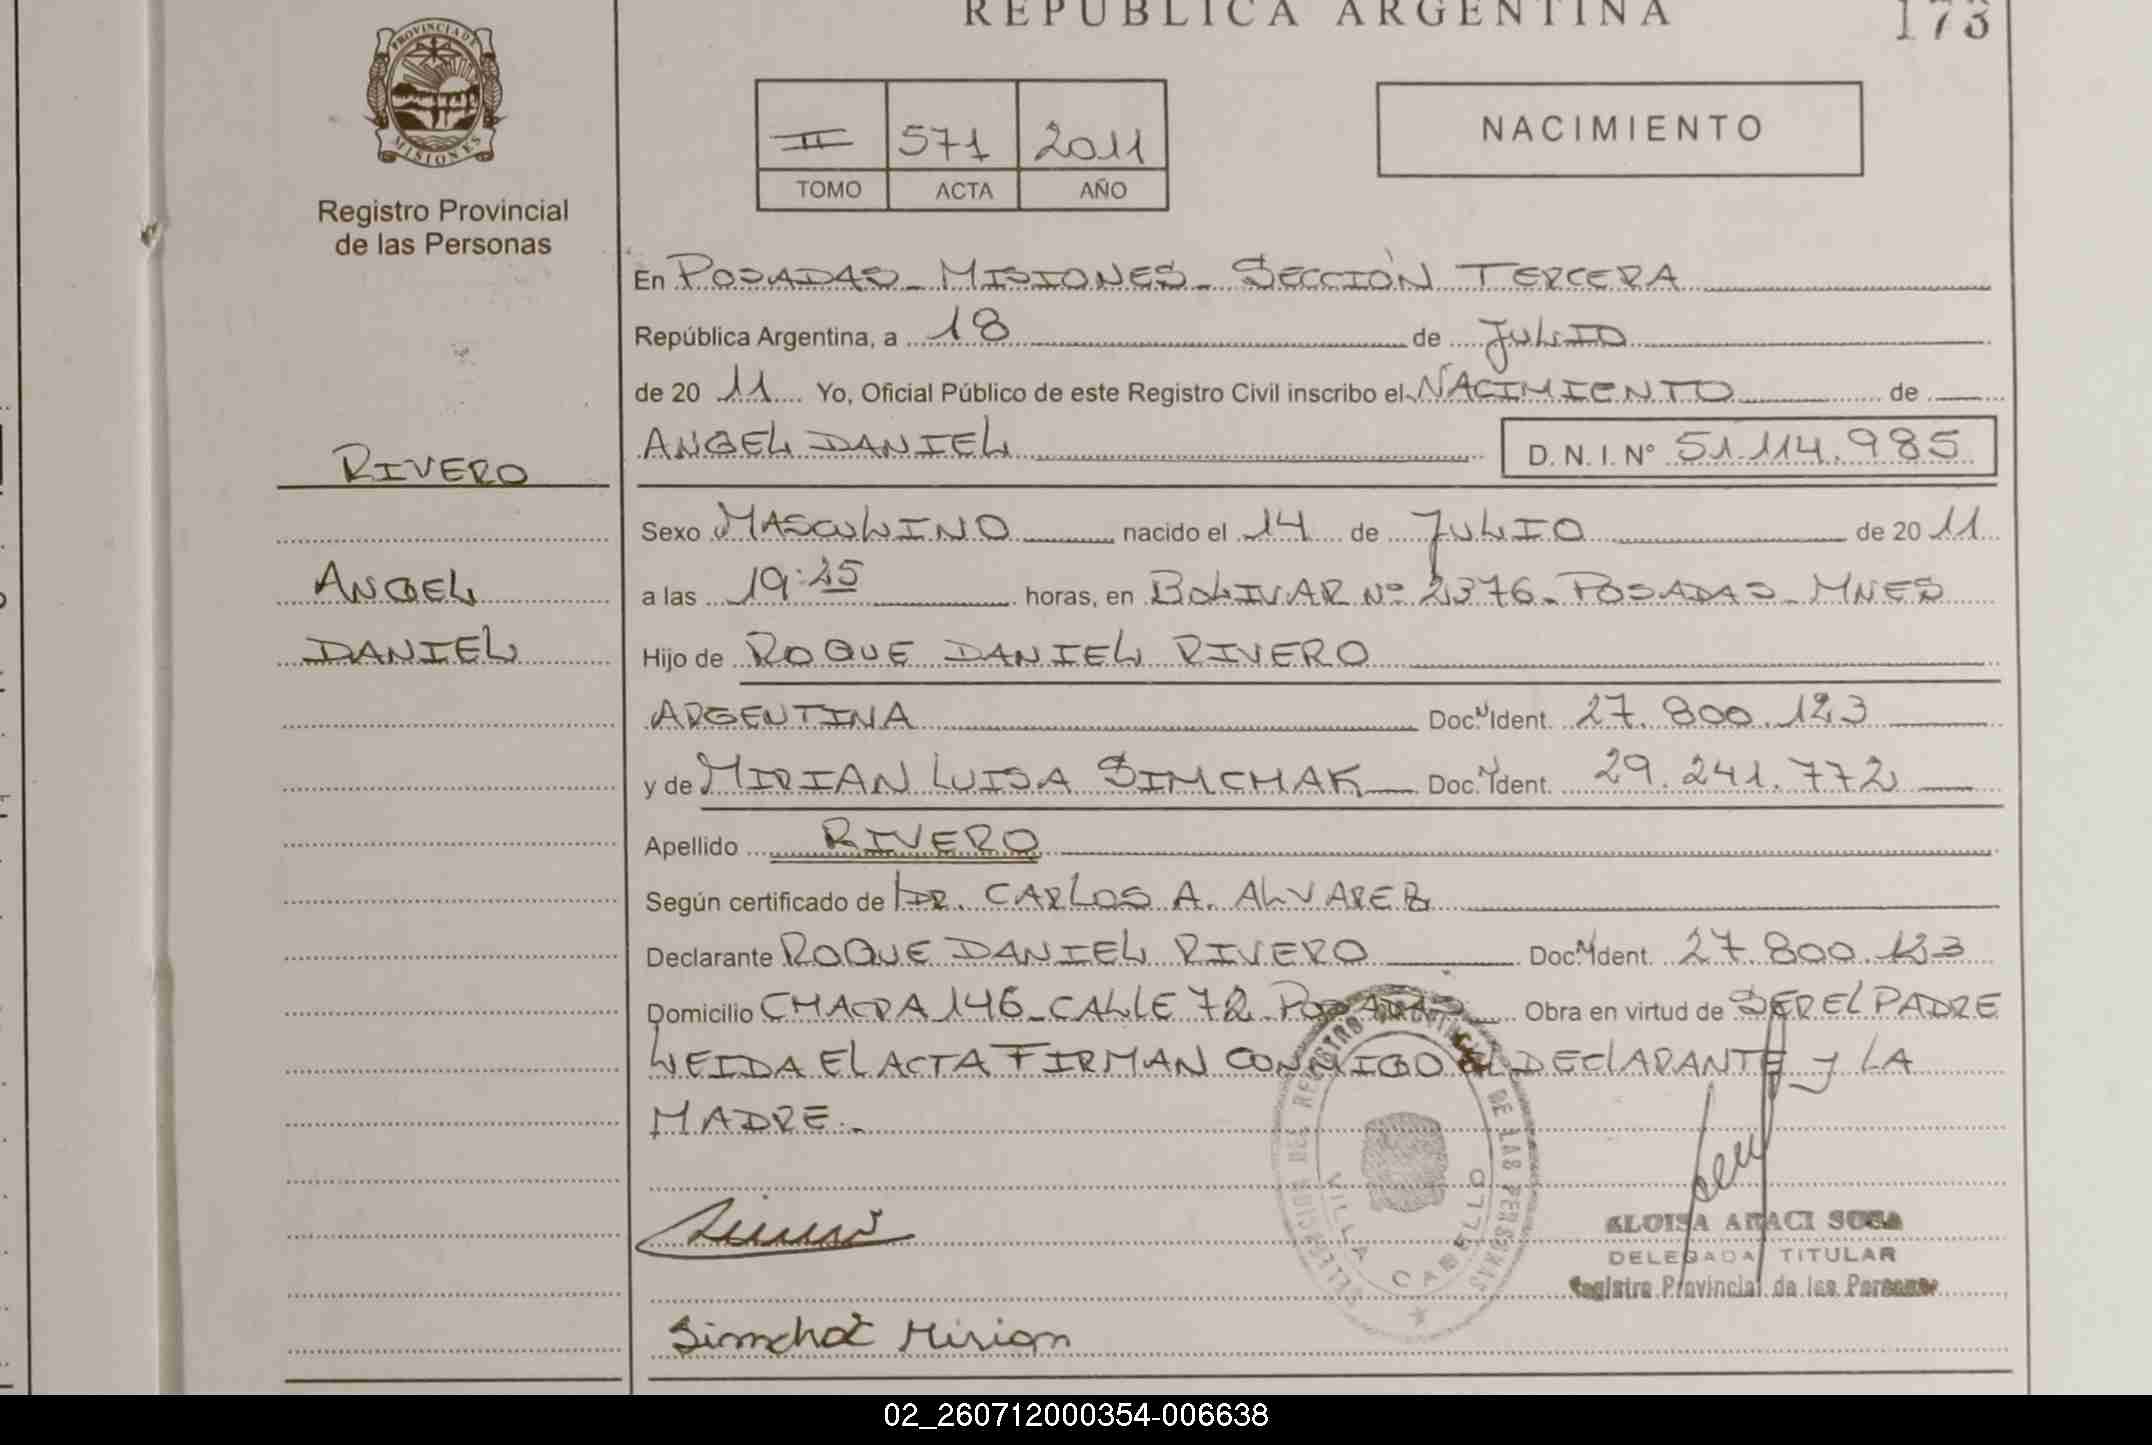 REPUBLICA ARGENTINA
173
PROVINCIA DE
MISIONES
Registro Provincial
de las Personas
II 571 2011
TOMO ACTA AÑO
NACIMIENTO
En POSADAS - MISIONES - SECCIÓN TERCERA
República Argentina, a 18 de JULIO
de 20 11 Yo, Oficial Público de este Registro Civil inscribo el NACIMIENTO de
ANGEL DANIEL D. N. I. Nº 51.114.985
RIVERO
Sexo MASCULINO nacido el 14 de JULIO de 20 11
ANGEL
a las 19:25 horas, en BOLIVAR Nº 2376 - POSADAS - MNES
DANIEL
Hijo de ROQUE DANIEL RIVERO
ARGENTINA Doc. Ident. 27.800.123
y de MIRIAN LUISA SIMCHAK Doc. Ident. 29.241.772
Apellido RIVERO
Según certificado de DR. CARLOS A. ALVAREZ
Declarante ROQUE DANIEL RIVERO Doc. Ident. 27.800.123
Domicilio CHACRA 146 - CALLE 72 - POSADAS Obra en virtud de SER EL PADRE
LEIDA EL ACTA FIRMAN CONMIGO EL DECLARANTE y LA
MADRE.-
DEL REGISTRO PROVINCIAL DE LAS PERSONAS
VILLA CABELLO
ELOISA ARACI SOSA
DELEGADA TITULAR
Registro Provincial de las Personas
Simchak Mirian
02_260712000354-006638